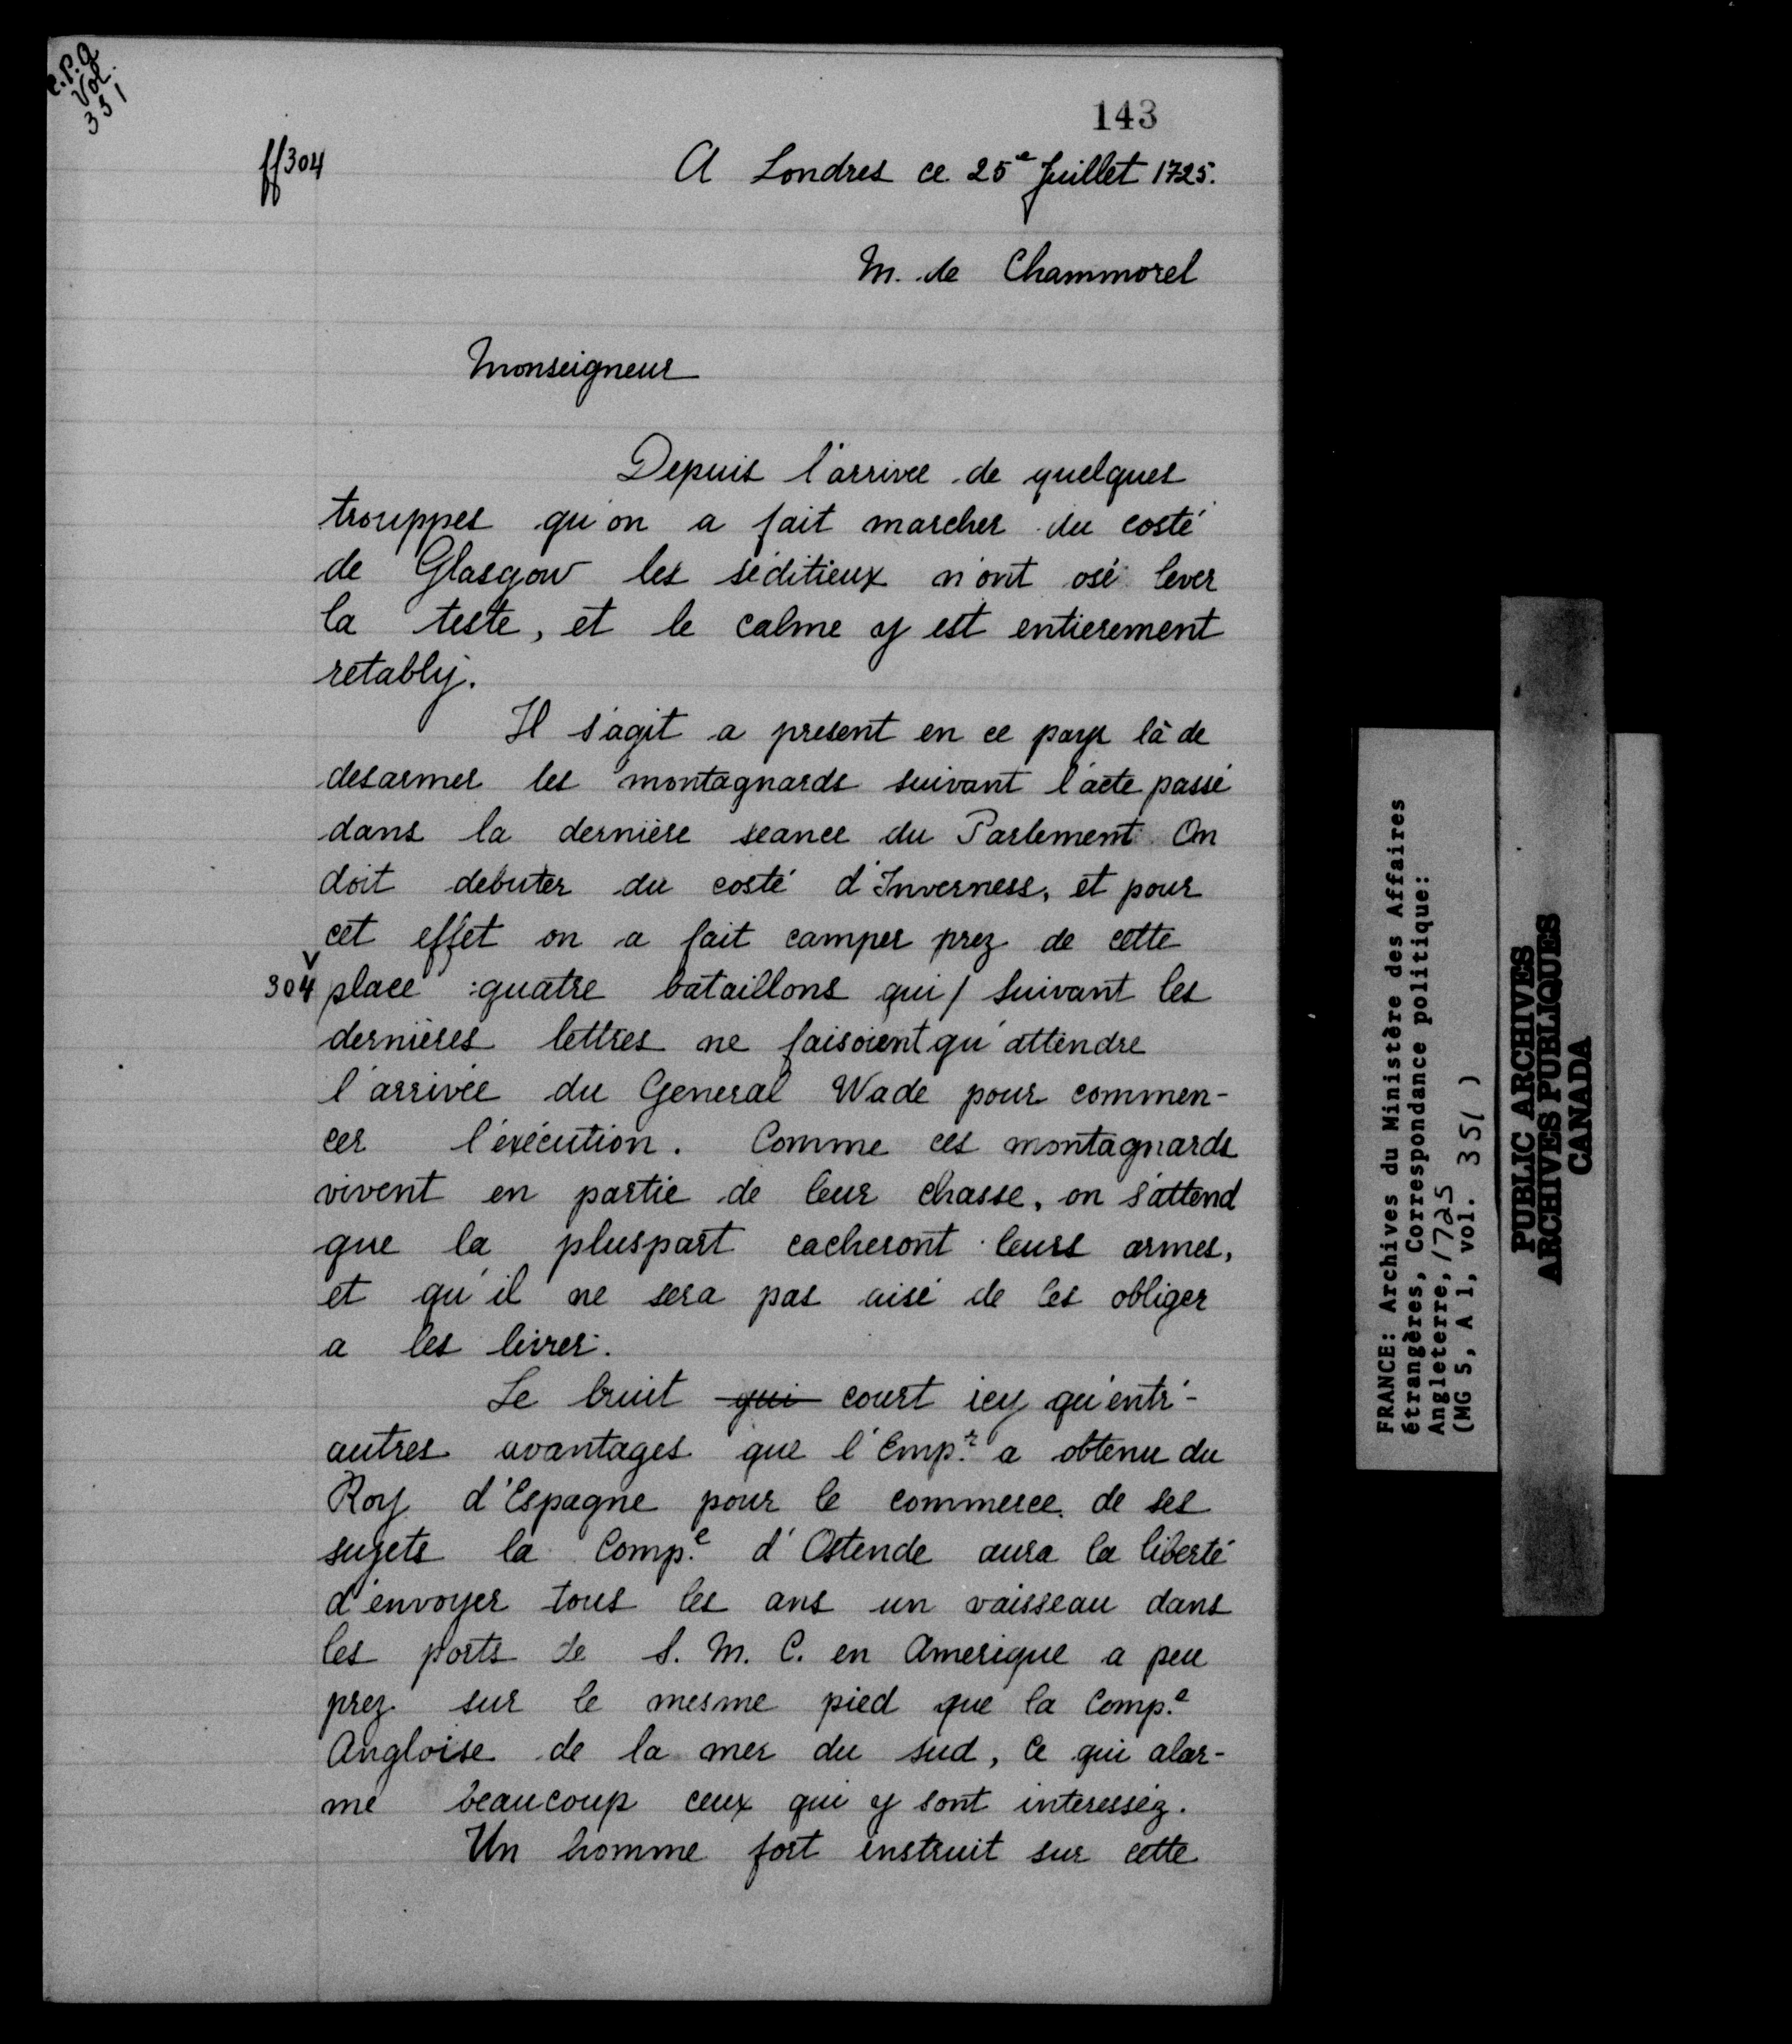 C.P.A
Vol.
351
143
ff304
A Londres ce 25e Juillet 1725.
M. de Chammorel
Monseigneur
Depuis l'arrivee de quelques
trouppes qu'on a fait marcher du costé
de Glasgow les séditieux n'ont osé lever
la teste, et le calme y est entierement
retably.
Il s'agit a present en ce pays là de
desarmer les montagnards suivant l'acte passé
dans la derniere seance du Parlement. On
doit debuter du costé d'Inverness, et pour
cet effet on a fait camper prez de cette
304v place quatre bataillons qui / suivant les
dernières lettres ne faisoient qu'attendre
l'arrivée du General Wade pour commen-
cer l'exécution. Comme ces montagnards
vivent en partie de leur chasse, on s'attend
que la pluspart cacheront leurs armes,
et qu'il ne sera pas aisé de les obliger
a les livrer.
Le bruit qui court icy qu'entr'-
autres avantages que l'Emp.r a obtenu du
Roy d'Espagne pour le commerce de ses
sujets la Comp.e d'Ostende aura la liberté
d'envoyer tous les ans un vaisseau dans
les ports de S. M. C. en Amerique a peu
prez sur le mesme pied que la Comp.e
Angloise de la mer du sud, ce qui alar-
me beaucoup ceux qui y sont interessez.
Un homme fort instruit sur cette
FRANCE: Archives du Ministère des Affaires
étrangères, Correspondance politique:
Angleterre, 1725
(MG 5, A 1, vol. 351 )
PUBLIC ARCHIVES
ARCHIVES PUBLIQUES
CANADA